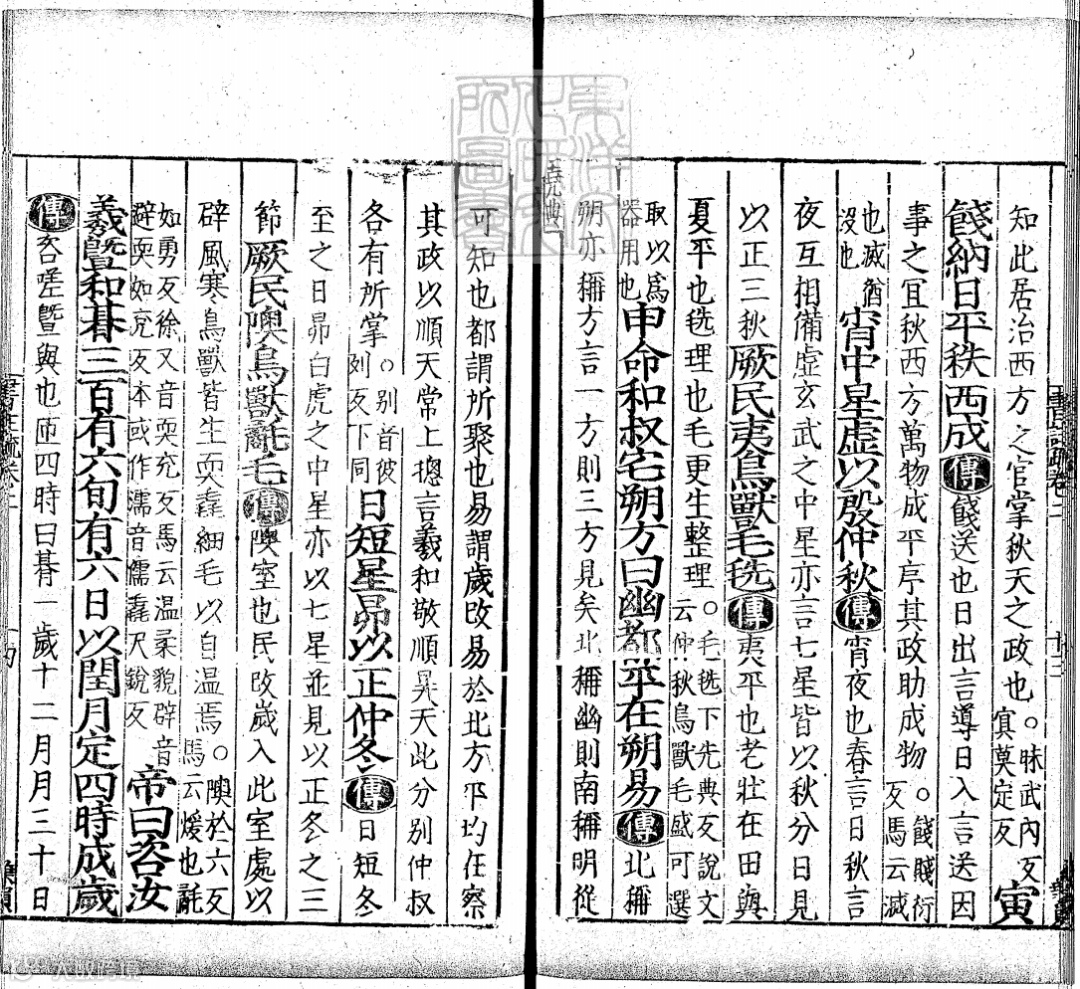 知此居治西方之官掌秋天之政也○昧武內反寅莫定反寅
餞納日平秩西成傳餞送也日出言導日入言送因
事之宜秋西方萬物成平序其政助成物○餞賤衍反馬云滅
也滅猶沒也宵中星虛以殷仲秋傳宵夜也春言日秋言
夜互相備虛玄武之中星亦言七星皆以秋分日見
以正三秋厥民夷鳥獸毛毨傳夷平也老壯在田與
夏平也毨理也毛更生整理○毛毨下先典反說文云仲秋鳥獸毛盛可選
取以為器用也申命和叔宅朔方曰幽都平在朔易傳北稱
朔亦稱方言一方則三方見矣北稱幽則南稱明從
堯典
可知也都謂所聚也易謂歲改易於北方平均在察
其政以順天常上摠言羲和敬順昊天此分別仲叔
各有所掌○別音彼列反下同日短星昴以正仲冬傳日短冬
至之日昴白虎之中星亦以七星並見以正冬之三
節厥民隩鳥獸氄毛傳隩室也民改歲入此室處以
辟風寒鳥獸皆生耎毳細毛以自温焉○隩於六反馬云煖也氄
如勇反徐又音耎充反馬云温柔貌辟音避耎如兗反本或作濡音儒毳尺銳反帝曰咨汝
羲暨和朞三百有六旬有六日以閏月定四時成歲
傳咨嗟暨與也匝四時曰朞一歲十二月月三十日